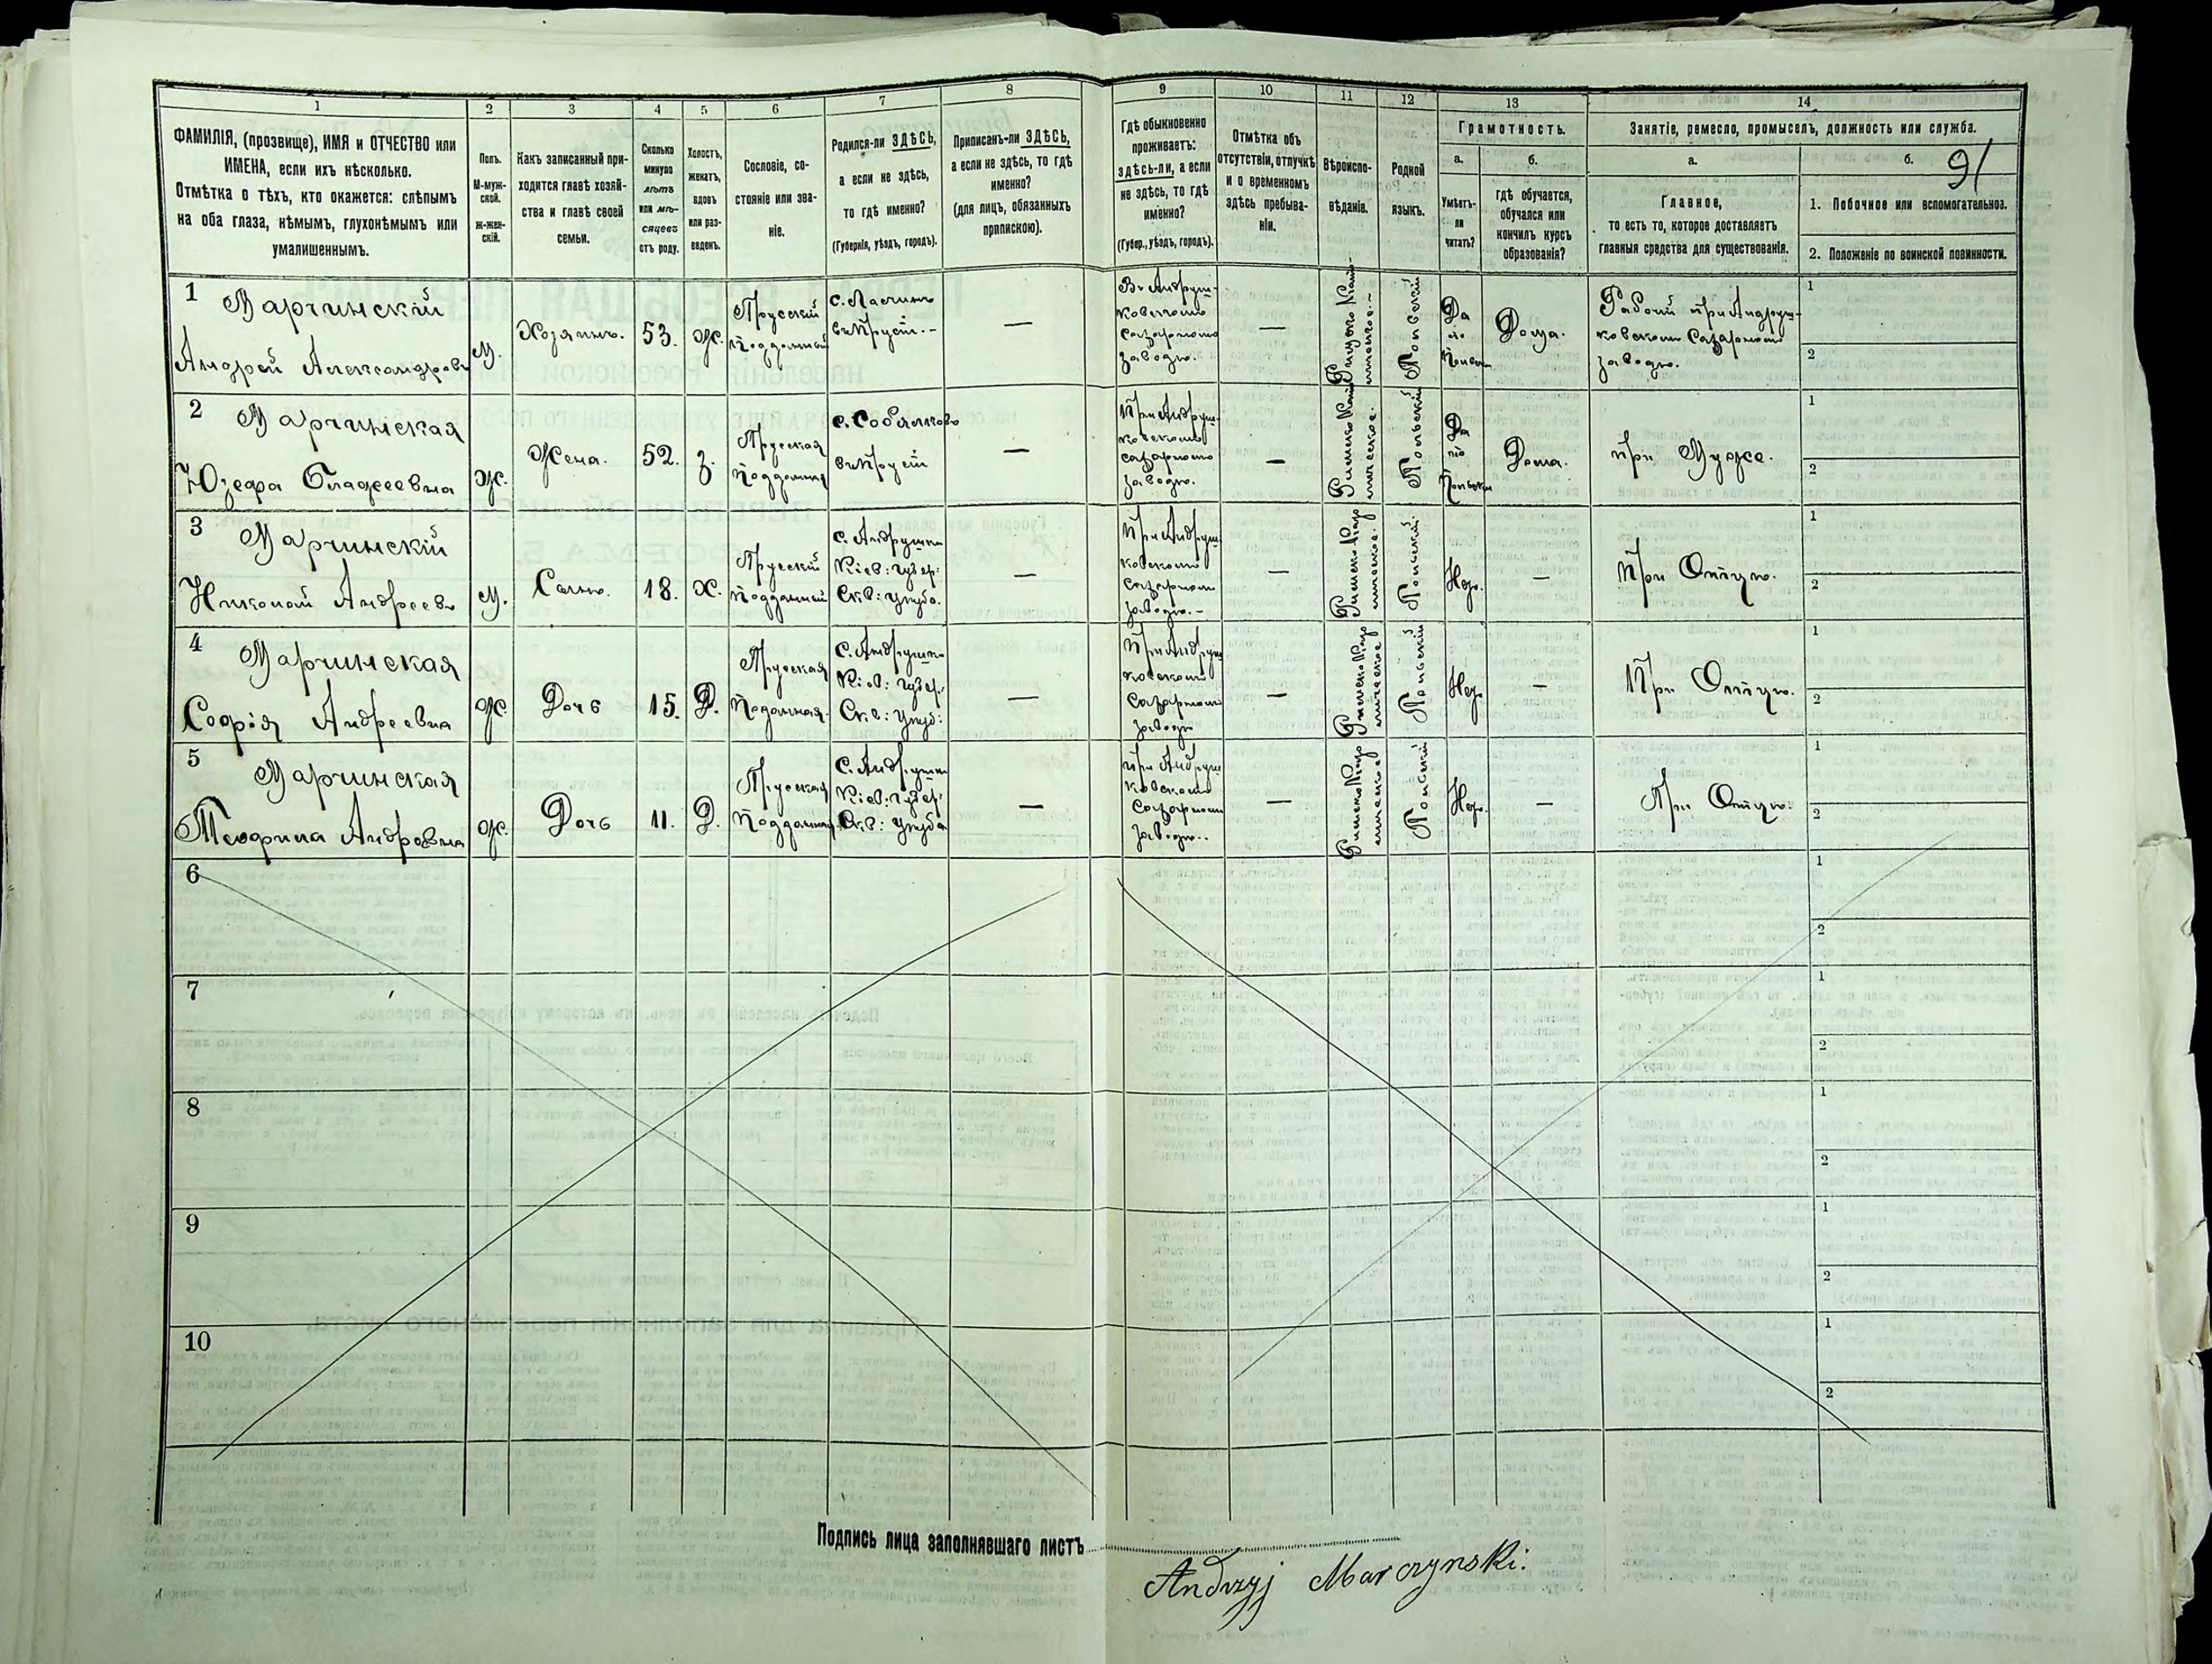 1 2 3 4 5 6 7 8 9 10 11 12 13 14
ФАМИЛІЯ, (прозвище), ИМЯ и ОТЧЕСТВО или
ИМЕНА, если ихъ нѣсколько.
Отмѣтка о тѣхъ, кто окажется: слѣпымъ
на оба глаза, нѣмымъ, глухонѣмымъ или
умалишеннымъ.
Полъ.
М-муж-
ской.
Ж-жен-
скій.
Какъ записанный при-
ходится главѣ хозяй-
ства и главѣ своей
семьи.
Сколько
минуло
лѣтъ
или мѣ-
сяцевъ
отъ роду.
Холостъ,
женатъ,
вдовъ
или раз-
веденъ.
Сословіе, со-
стояніе или зва-
ніе.
Родился-ли ЗДѢСЬ,
а если не здѣсь,
то гдѣ именно?
(Губернія, уѣздъ, городъ).
Приписанъ-ли ЗДѢСЬ,
а если не здѣсь, то гдѣ
именно?
(для лицъ, обязанныхъ
припискою).
Гдѣ обыкновенно
проживаетъ:
здѣсь-ли, а если
не здѣсь, то гдѣ
именно?
(Губер., уѣздъ, городъ).
Отмѣтка объ
отсутствіи, отлучкѣ
и о временномъ
здѣсь пребыва-
ніи.
Вѣроиспо-
вѣданіе.
Родной
языкъ.
Грамотность.
а.
Умѣетъ-
ли
читать?
б.
гдѣ обучается,
обучался или
кончилъ курсъ
образованія?
Занятіе, ремесло, промыселъ, должность или служба.
а.
Главное,
то есть то, которое доставляетъ
главныя средства для существованія.
б.
91
1. Побочное или вспомогательное.
2. Положеніе по воинской повинности.
1
Марчинскій
Андрей Александровъ
М.
Хозяинъ.
53.
Ж.
Прусскій
Подданный
въ Прусіи.-
—
Въ Андруш-
ковскомъ
Сахарномъ
заводѣ.
—
Польскій
Да
по
Дома.
Рабочій при Андруш-
ковскомъ Сахарномъ
заводѣ.
1
2
2
Марчинская
Юзефа
Ж.
Жена.
52.
З.
Прусская
Подданная
въ Прусіи
—
При Андруш-
ковскомъ
сахарномъ
заводѣ.
—
Польскій
Да
по
Польски
Дома.
При Мужѣ.
1
2
3
Марчинскій
Николай Андреевъ
М.
Сынъ.
18.
Х.
Прусскій
Подданный
С. Андрушки
Кіев: губер:
Скв: уѣзда.
—
При Андруш-
ковскомъ
Сахарномъ
заводѣ.-
—
Польскій.
Нѣт.
—
При Отцѣ.
1
2
4
Марчинская
Софія Андреевна
Ж.
Дочь
15.
Д.
Прусская
Поданная.
С. Андрушки
Кіев: губер:
Скв: уѣзд:
—
При Андруш
ковскомъ
Сахарномъ
заводѣ
—
Польскій
Нѣт.
—
При Отцѣ.
1
2
5
Марчинская
Теофила Андровна
Ж.
Дочь
11.
Д.
Прусская
Подданная
С. Андрушки
Кіев: губер:
Скв: уѣзда
—
При Андруш
ковскомъ
Сахарномъ
заводѣ..
—
Польскій
Нѣт.
—
При Отцѣ.
1
2
6
1
2
7
1
2
8
1
2
9
1
2
10
1
2
Подпись лица заполнявшаго листъ
Andrzyj Marczynski.